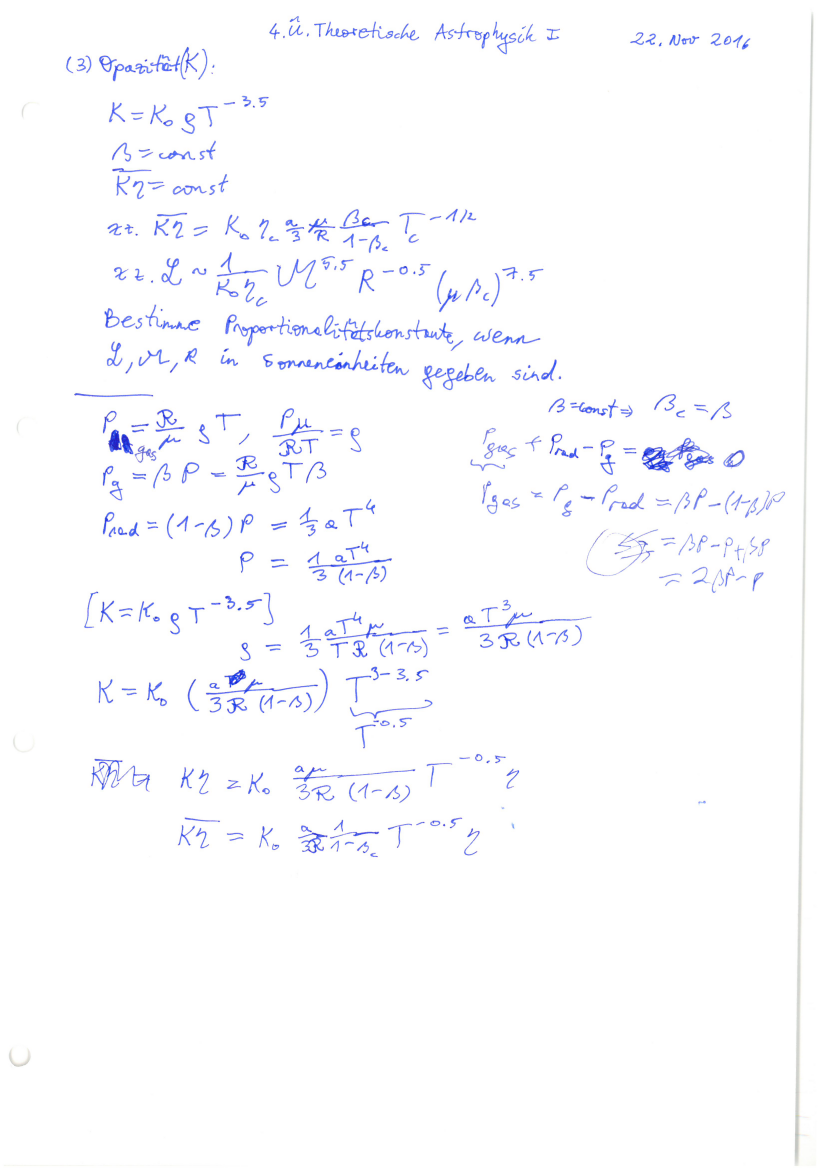 4. Ü. Theoretische Astrophysik I 22. Nov 2016
(3) Opazität(K):
K = K₀ ρ T^{-3.5}
β = const
\overline{Kη} = const
zz. \overline{Kη} = K₀ η_c \frac{a}{3} \frac{μ}{R} \frac{β_c}{1-β_c} T_c^{-1/2}
zz. L ~ \frac{1}{K₀ η_c} M^{5.5} R^{-0.5} (μ β_c)^{7.5}
Bestimme Proportionalitätskonstante, wenn
L, M, R in Sonneneinheiten gegeben sind.
β = const ⇒ β_c = β
P_{gas} = \frac{R}{μ} ρ T, \frac{Pμ}{RT} = ρ
P_{gas} + P_{rad} - P_g = 0
P_g = β P = \frac{R}{μ} ρ T β
P_{gas} = P_g - P_{rad} = βP - (1-β)P
P_{rad} = (1-β) P = \frac{1}{3} a T^4
= βP - P + βP
P = \frac{1}{3} \frac{aT^4}{(1-β)}
= 2βP - P
[K = K₀ ρ T^{-3.5}]
ρ = \frac{1}{3} \frac{aT^4 μ}{T R (1-β)} = \frac{a T^3 μ}{3 R (1-β)}
K = K₀ (\frac{a μ}{3 R (1-β)}) T^{3-3.5}
T^{-0.5}
Kη = K₀ \frac{aμ}{3R (1-β)} T^{-0.5} η
\overline{Kη} = K₀ \frac{a}{3R} \frac{1}{1-β_c} T^{-0.5} η